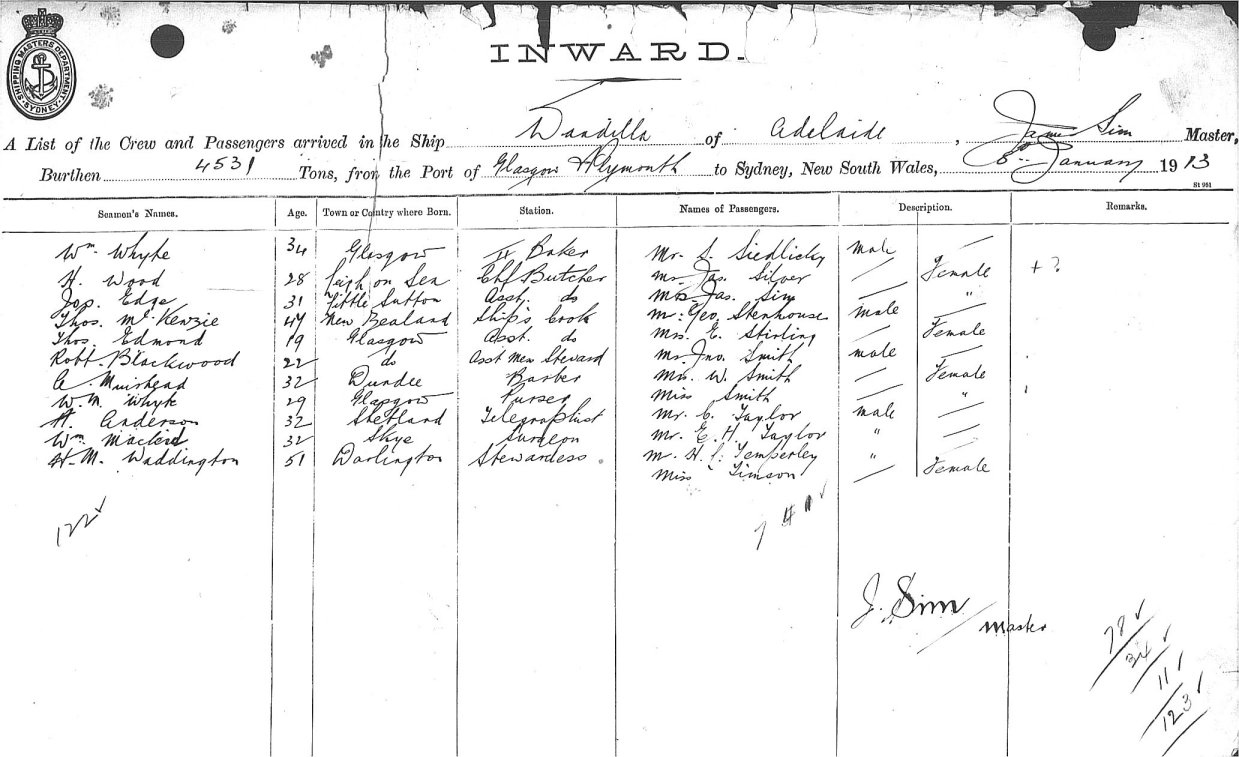 SHIPPING MASTERS DEPARTMENT
SYDNEY
INWARD.
A List of the Crew and Passengers arrived in the Ship Wandilla of Adelaide, James Sim Master,
Burthen 4531 Tons, from the Port of Glasgow Plymouth to Sydney, New South Wales, January 1913
St 961
Seamen's Names. Age. Town or Country where Born. Station. Names of Passengers. Description. Remarks.
Wm Whyte 34 Glasgow Baker Mr. S. Siedlicky male
H. Wood 28 Leigh on Sea Chf Butcher Jas. Silver Female + ?
Jos. Edge 31 Little Sutton Asst. do Mrs Jas. Sim "
Thos. Mc Kenzie 47 New Zealand Ship's Cook Mr. Geo. Stenhouse male
Thos. Edmond 19 Glasgow Asst. do Mrs. E. Stirling Female
Robt. Blackwood 22 do Asst Mess Steward Mr. Jno. Smith male
A. Muirhead 32 Dundee Barber Mrs. W. Smith Female
W. M. Whyte 29 Glasgow Purser Miss Smith "
A. Anderson 32 Shetland Telegraphist Mr. C. Taylor male
Wm 32 Skye Surgeon Mr. E. H. Taylor "
H. M. Waddington 51 Darlington Stewardess Mr. H. Temperley "
Miss Timson Female
122
J. Sim
Master
78
34
11
123